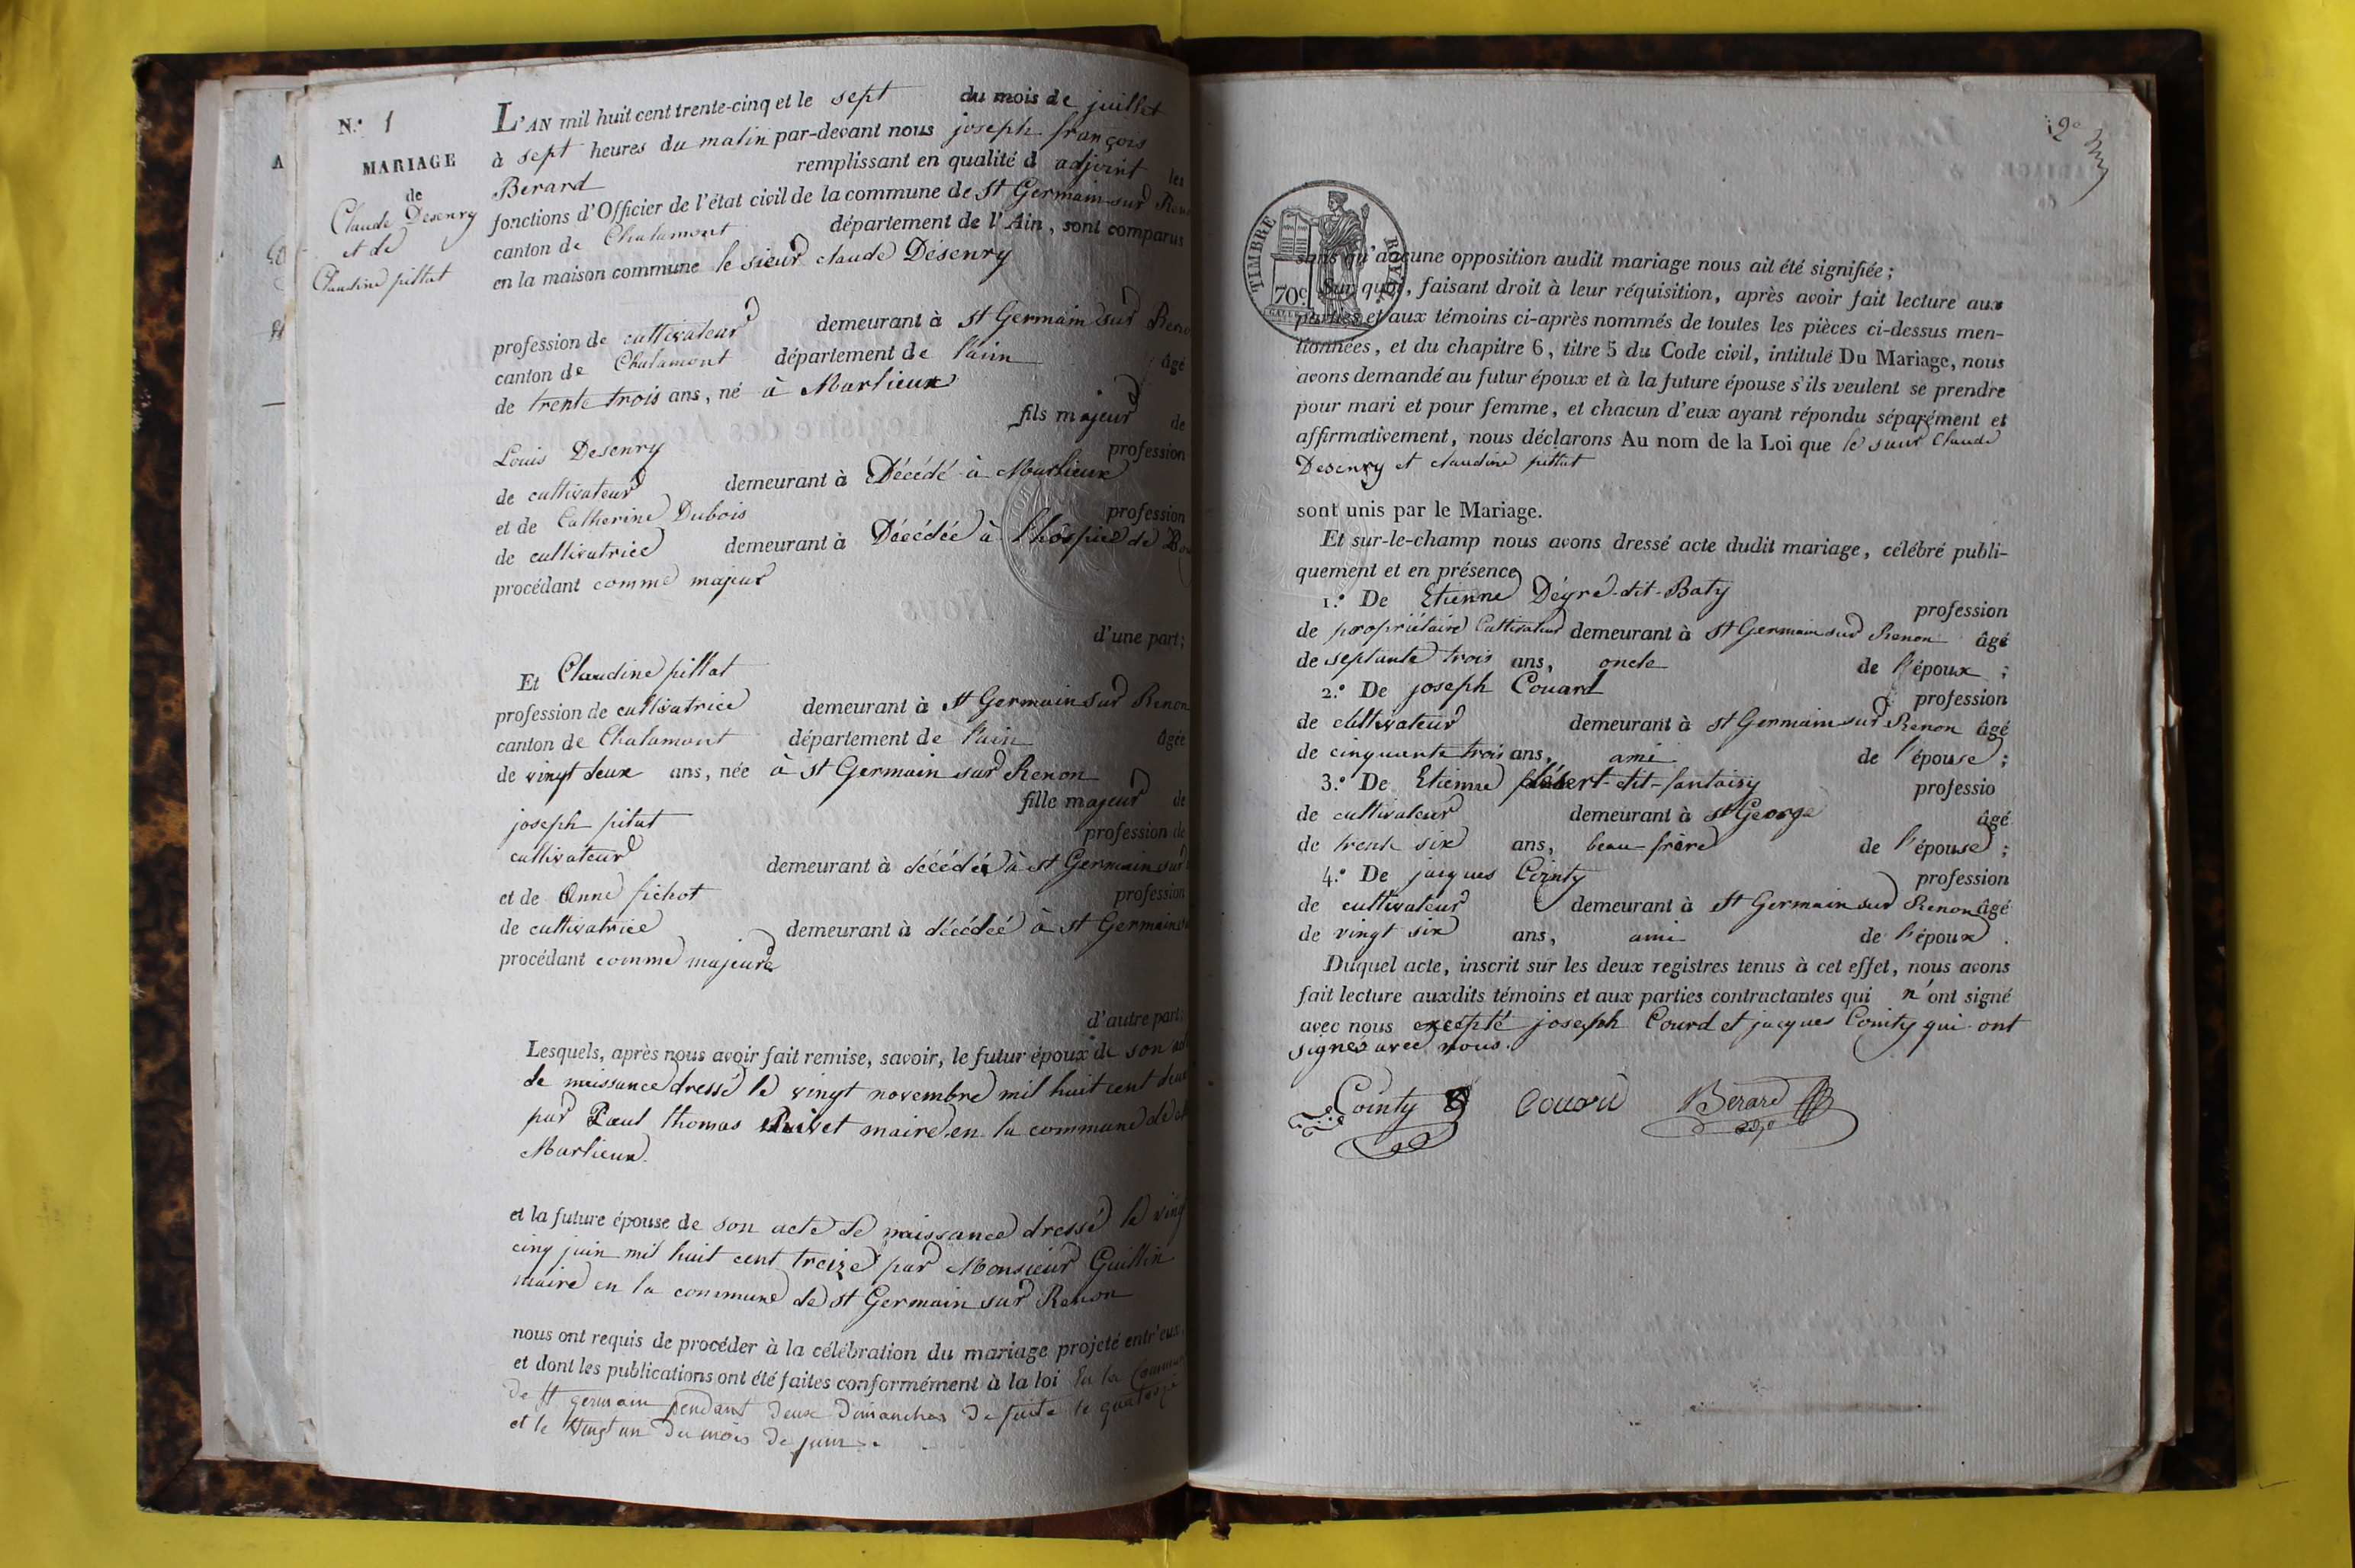 N.° 1
MARIAGE
de
Claude Desenry
et de
Claudine pittat
L'AN mil huit cent trente-cinq et le sept du mois de juillet
à sept heures du matin par-devant nous joseph françois
Berard remplissant en qualité d adjoint les
fonctions d'Officier de l'état civil de la commune de St Germain sur Renon
canton de Chalamont département de l'Ain, sont comparus
en la maison commune le sieur claude Désenry
profession de cultivateur demeurant à St Germain sur Reno
canton de Chalamont département de l'ain âgé
de trente trois ans, né à Marlieux
fils majeur de
Louis Desenry profession
de cultivateur demeurant à Décédé à Marlieux
et de Catherine Dubois profession
de cultivatrice demeurant à Décédée à l'hospice de Bou
procédant comme majeur
d'une part;
Et Claudine pittat
profession de cultivatrice demeurant à St Germain sur Renon
canton de Chalamont département de l'ain âgée
de vingt deux ans, née à St Germain sur Renon
fille majeur de
joseph pitat profession de
cultivateur demeurant à décédé à St Germain sur
et de Anne pichot profession
de cultivatrice demeurant à décédée à St Germain
procédant comme majeure
d'autre part.
Lesquels, après nous avoir fait remise, savoir, le futur époux de son
de naissance dressé le vingt novembre mil huit cent deux
par Paul thomas maire en la commune de
Marlieux.
et la future épouse de son acte de naissance dressé le vingt
cinq juin mil huit cent treize par Monsieur Guillin
maire en la commune de St Germain sur Renon
nous ont requis de procéder à la célébration du mariage projeté entr'eux,
et dont les publications ont été faites conformément à la loi En la Commune
de St germain pendant deux dimanches de suite le quatorze
et le vingt un du mois de juin.
2e
TIMBRE ROYAL
70c.
sans qu'aucune opposition audit mariage nous ait été signifiée;
Sur quoi, faisant droit à leur réquisition, après avoir fait lecture aux
parties et aux témoins ci-après nommés de toutes les pièces ci-dessus men-
tionnées, et du chapitre 6, titre 5 du Code civil, intitulé Du Mariage, nous
avons demandé au futur époux et à la future épouse s'ils veulent se prendre
pour mari et pour femme, et chacun d'eux ayant répondu séparément et
affirmativement, nous déclarons Au nom de la Loi que le sieur Claude
Desenry et claudine pittat
sont unis par le Mariage.
Et sur-le-champ nous avons dressé acte dudit mariage, célébré publi-
quement et en présence
1.° De Etienne Dégré-dit-Baty profession
de propriétaire Cultivateur demeurant à St Germain sur Renon âgé
de septante trois ans, oncle de l'époux ;
2.° De joseph Couard profession
de cultivateur demeurant à St Germain sur Renon âgé
de cinquante trois ans, ami de l'épouse ;
3.° De Etienne dit-fantaisy professio
de cultivateur demeurant à St George âgé
de trente six ans, beau-frère de l'épouse ;
4.° De jacques Cointy profession
de cultivateur demeurant à St Germain sur Renon âgé
de vingt six ans, ami de l'époux .
Duquel acte, inscrit sur les deux registres tenus à cet effet, nous avons
fait lecture auxdits témoins et aux parties contractantes qui n'ont signé
avec nous excepté joseph Courd et jacques Cointy qui ont
signés avec nous.
Cointy Couard Berard